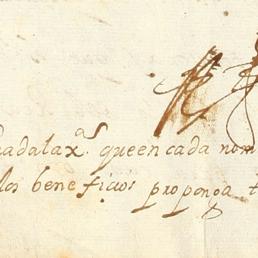 adalax.ª que en cada nom
los beneficios proponga